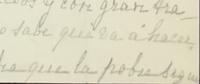 y con gran
o sabe que va á hacer,
que la pobre sigue